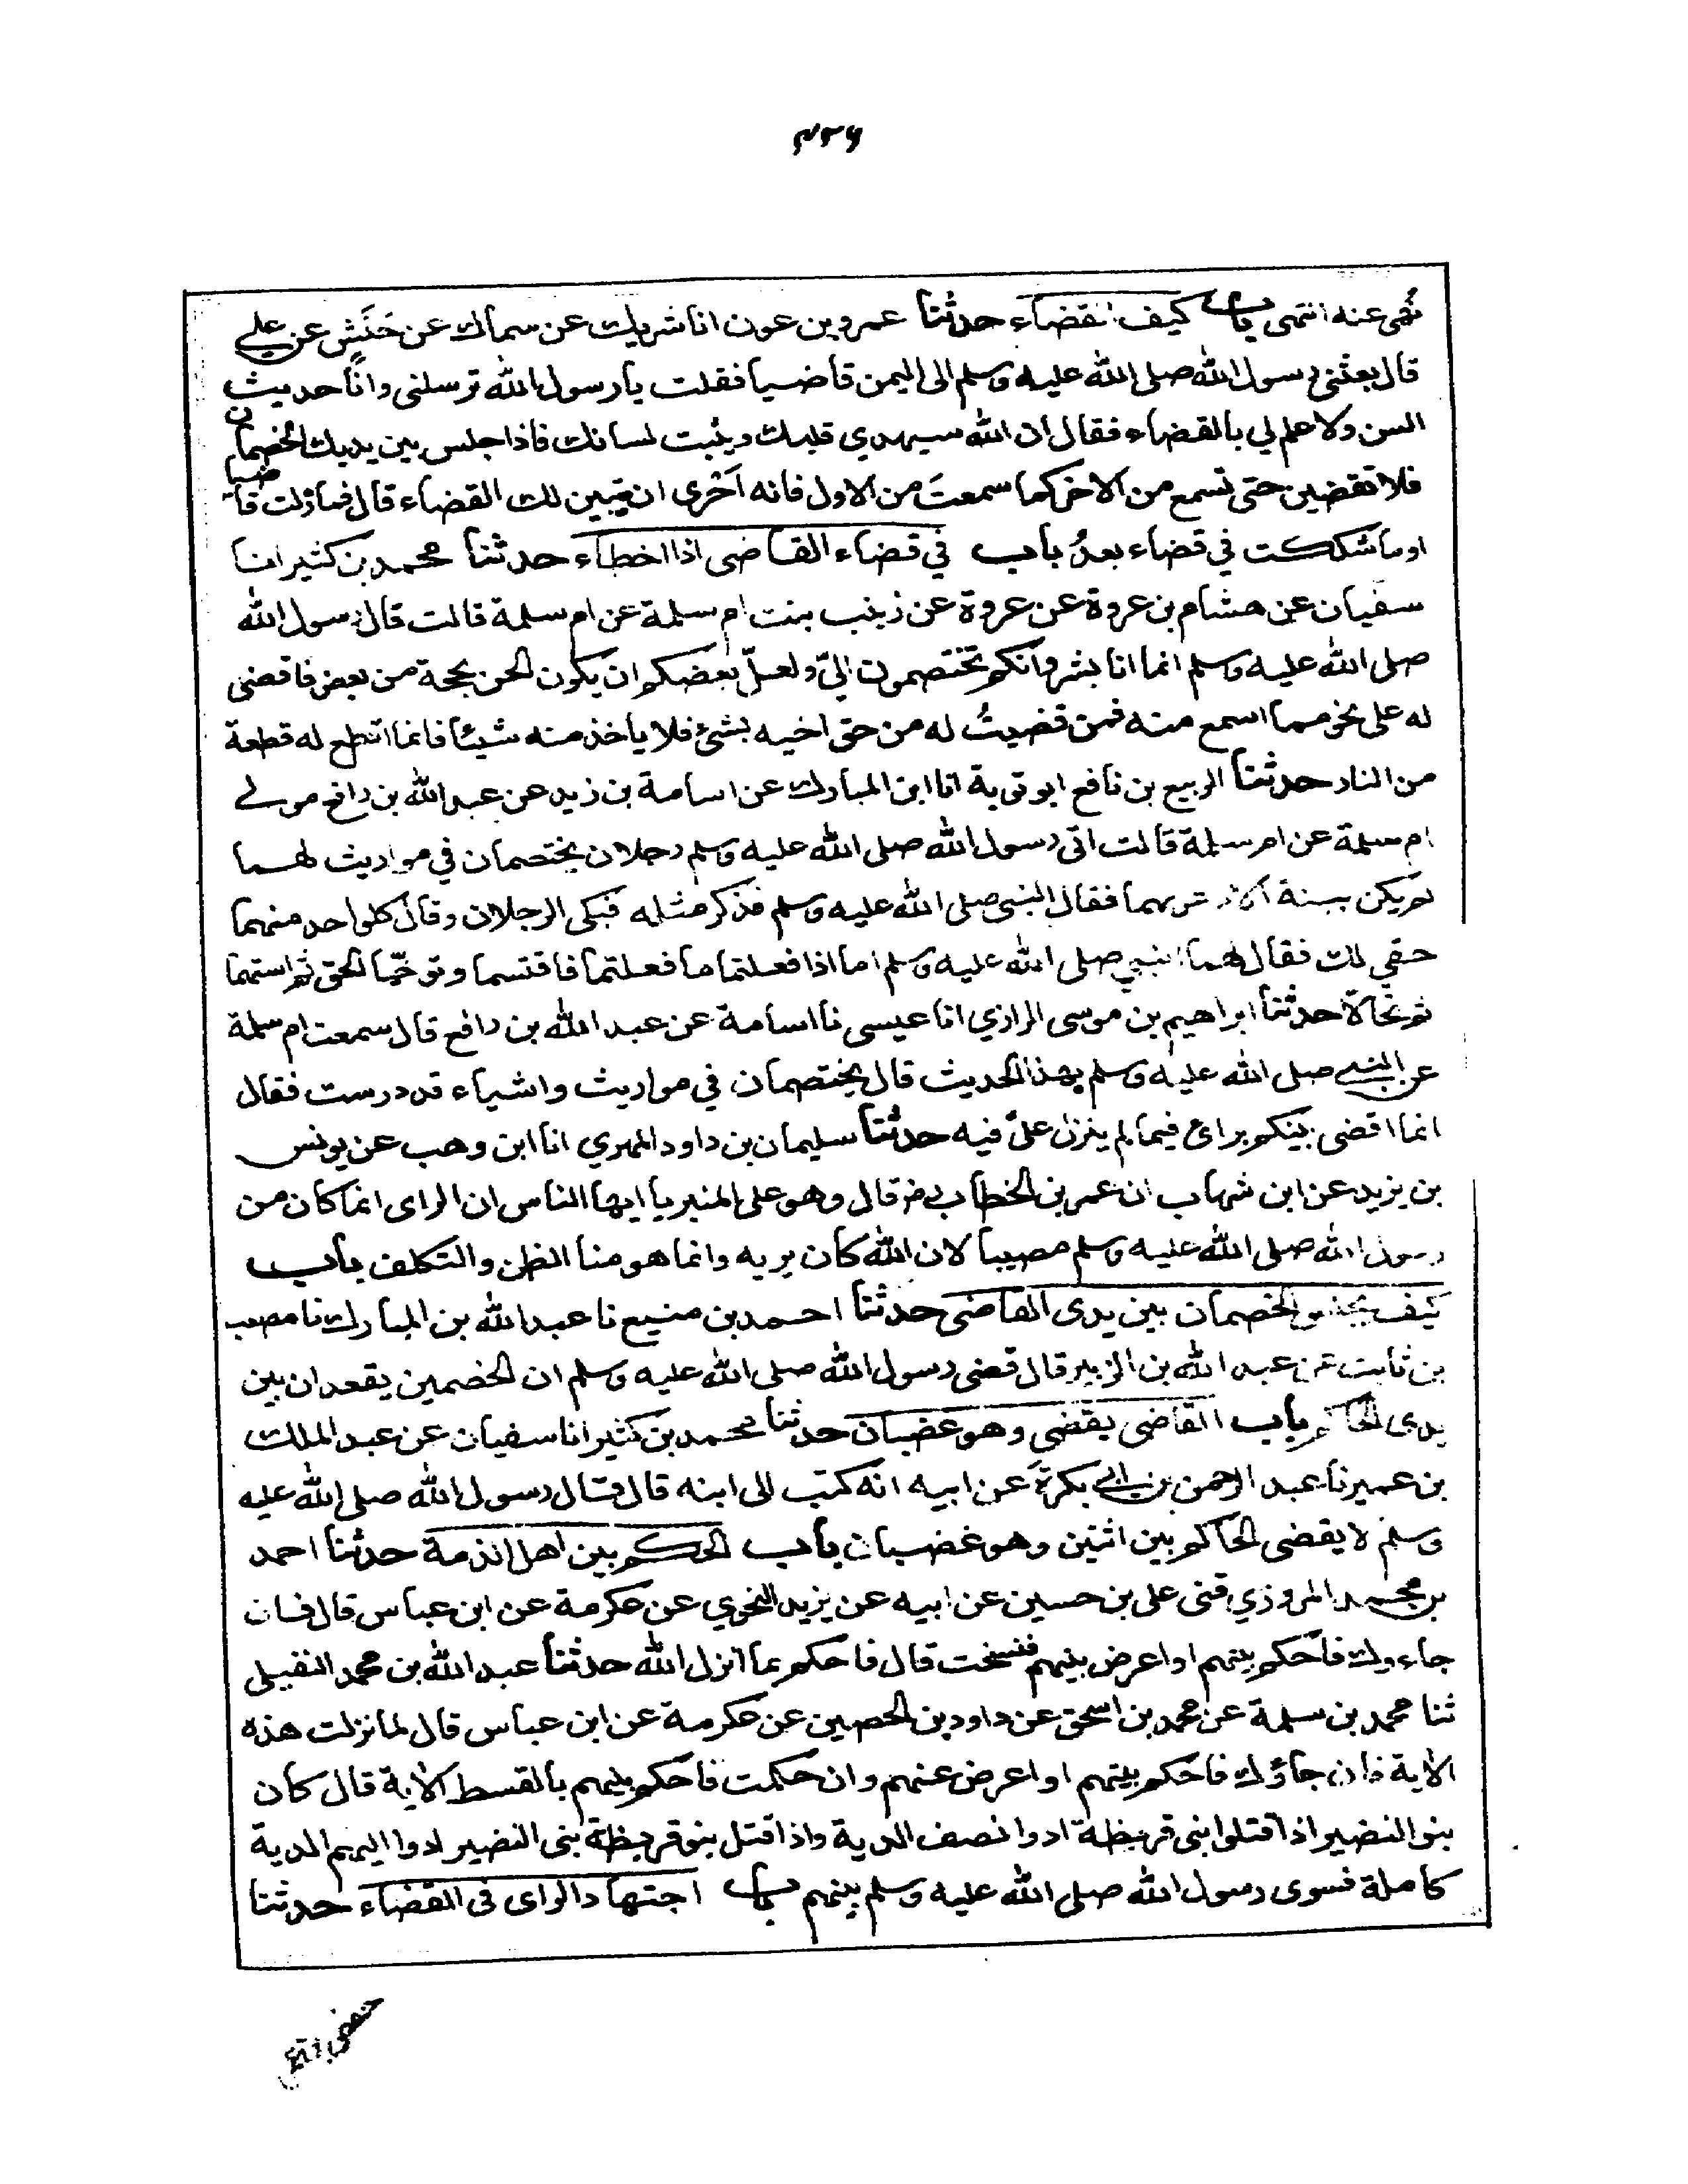 ۴۳۶
نهى عنه انتهى باب كيف القضاء حدثنا عمرو بن عون انا شريك عن سماك عن حَنَشٍ عن علي
قال بعثني رسول الله صلى الله عليه وسلم الى اليمن قاضيا فقلت يا رسول الله ترسلني وانا حديث
السن ولا علم لي بالقضاء فقال ان الله سيهدي قلبك ويثبت لسانك فاذا جلس بين يديك الخصمان
فلا تقضين حتى تسمع من الآخر كما سمعتَ من الاول فانه أحْرى ان يتبين لك القضاء قال فما زلت قاضيا
او ما شككت في قضاء بعدُ باب في قضاء القاضى اذا اخطاء حدثنا محمد بن كثير انا
سفيان عن هشام بن عروة عن عروة عن زينب بنت ام سلمة عن ام سلمة قالت قال رسول الله
صلى الله عليه وسلم انما انا بشر وانكم تختصمون اليّ ولعلّ بعضكم ان يكون الحن بحجة من بعض فاقضى
له على نحو مما اسمع منه فمن قضيتُ له من حق اخيه بشئ فلا ياخذ منه شيئا فانما اقطع له قطعة
من النار حدثنا الربيع بن نافع ابو توبة انا ابن المبارك عن اسامة بن زيد عن عبد الله بن رافع مولى
ام سلمة عن ام سلمة قالت اتى رسول الله صلى الله عليه وسلم رجلان يختصمان في مواريث لهما
لم يكن ببينة الا دعوبهما فقال النبى صلى الله عليه وسلم فذكر مثله فبكى الرجلان وقال كل واحد منهما
حقي لك فقال لهما النبي صلى الله عليه وسلم اما اذا فعلتما ما فعلتما فاقتسما وتوخّيا الحق ثم استهما
ثم تحالّا حدثنا ابراهيم بن موسى الرازي انا عيسى نا اسامة عن عبد الله بن رافع قال سمعت ام سلمة
عن النبي صلى الله عليه وسلم بهذا الحديث قال يختصمان في مواريث واشياء قد درست فقال
انما اقضى بينكم برائ فيما لم ينزل علىّ فيه حدثنا سليمان بن داود المهري انا ابن وهب عن يونس
بن يزيد عن ابن شهاب ان عمر بن الخطاب رض قال وهو على المنبر يا ايها الناس ان الراى انما كان من
رسول الله صلى الله عليه وسلم مصيبا لان الله كان يريه وانما هو منا الظن والتكلف باب
كيف يجلس الخصمان بين يدى القاضى حدثنا احمد بن منيع نا عبد الله بن المبارك نا مصعب
بن ثابت عن عبد الله بن الزبير قال قضى رسول الله صلى الله عليه وسلم ان الخصمين يقعدان بين
يدى الحاكم باب القاضى يقضى وهو غضبان حدثنا محمد بن كثير انا سفيان عن عبد الملك
بن عمير نا عبد الرحمن بن ابي بكرةَ عن ابيه انه كتب الى ابنه قال قال رسول الله صلى الله عليه
وسلم لا يقضى الحاكم بين اثنين وهو غضبان باب الحكم بين اهل الذمة حدثنا احمد
بن محمد المروزي ثنى على بن حسين عن ابيه عن يزيد النحوي عن عكرمة عن ابن عباس قال فان
جاءوك فاحكم بينهم او اعرض بينهم فنسخت قال فاحكم بما انزل الله حدثنا عبد الله بن محمد النفيلى
ثنا محمد بن سلمة عن محمد بن اسحق عن داود بن الحصين عن عكرمة عن ابن عباس قال لما نزلت هذه
الآية فان جاؤك فاحكم بينهم او اعرض عنهم وان حكمت فاحكم بينهم بالقسط الآية قال كان
بنو النضير اذا قتلوا بنى قريظة ادوا نصف الدية واذا قتل بنو قريظة بنى النضير ادوا اليهم الدية
كاملة فسوى رسول الله صلى الله عليه وسلم بينهم باب اجتهاد الراى فى القضاء حدثنا